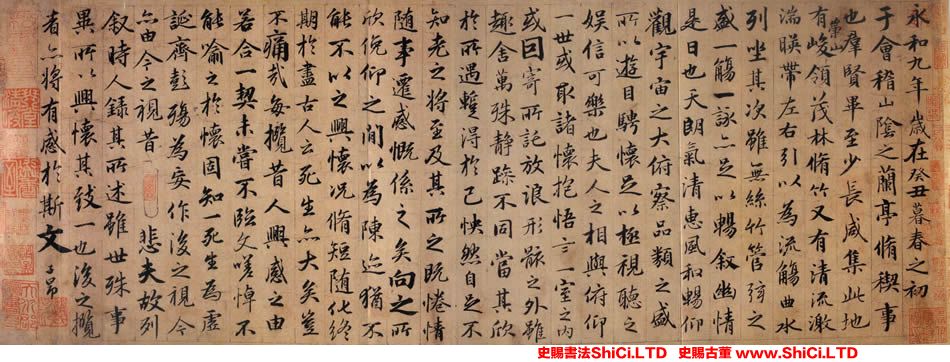 永和九年歲在癸丑暮春之初
于會稽山陰之蘭亭脩稧事
也羣賢畢至少長咸集此地
有崇山峻領茂林脩竹又有清流激
湍暎帶左右引以為流觴曲水
列坐其次雖無絲竹管弦之
盛一觴一詠亦足以暢叙幽情
是日也天朗氣清惠風和暢仰
觀宇宙之大俯察品類之盛
所以遊目騁懷足以極視聽之
娛信可樂也夫人之相與俯仰
一世或取諸懷抱悟言一室之内
或因寄所託放浪形骸之外雖
趣舍萬殊静躁不同當其欣
於所遇蹔得於己怏然自足不
知老之將至及其所之既惓情
随事遷感慨係之矣向之所
欣俛仰之閒以為陳迹猶不
能不以之興懷況脩短随化終
期於盡古人云死生亦大矣豈
不痛哉每攬昔人興感之由
若合一契未嘗不臨文嗟悼不
能喻之於懷固知一死生為虛
誕齊彭殤為妄作後之視今
亦由今之視昔悲夫故列
叙時人錄其所述雖世殊事
異所以興懷其致一也後之攬
者亦將有感於斯文 子昂
史賜書法ShiCi.LTD 史賜古董www.ShiCi.LTD